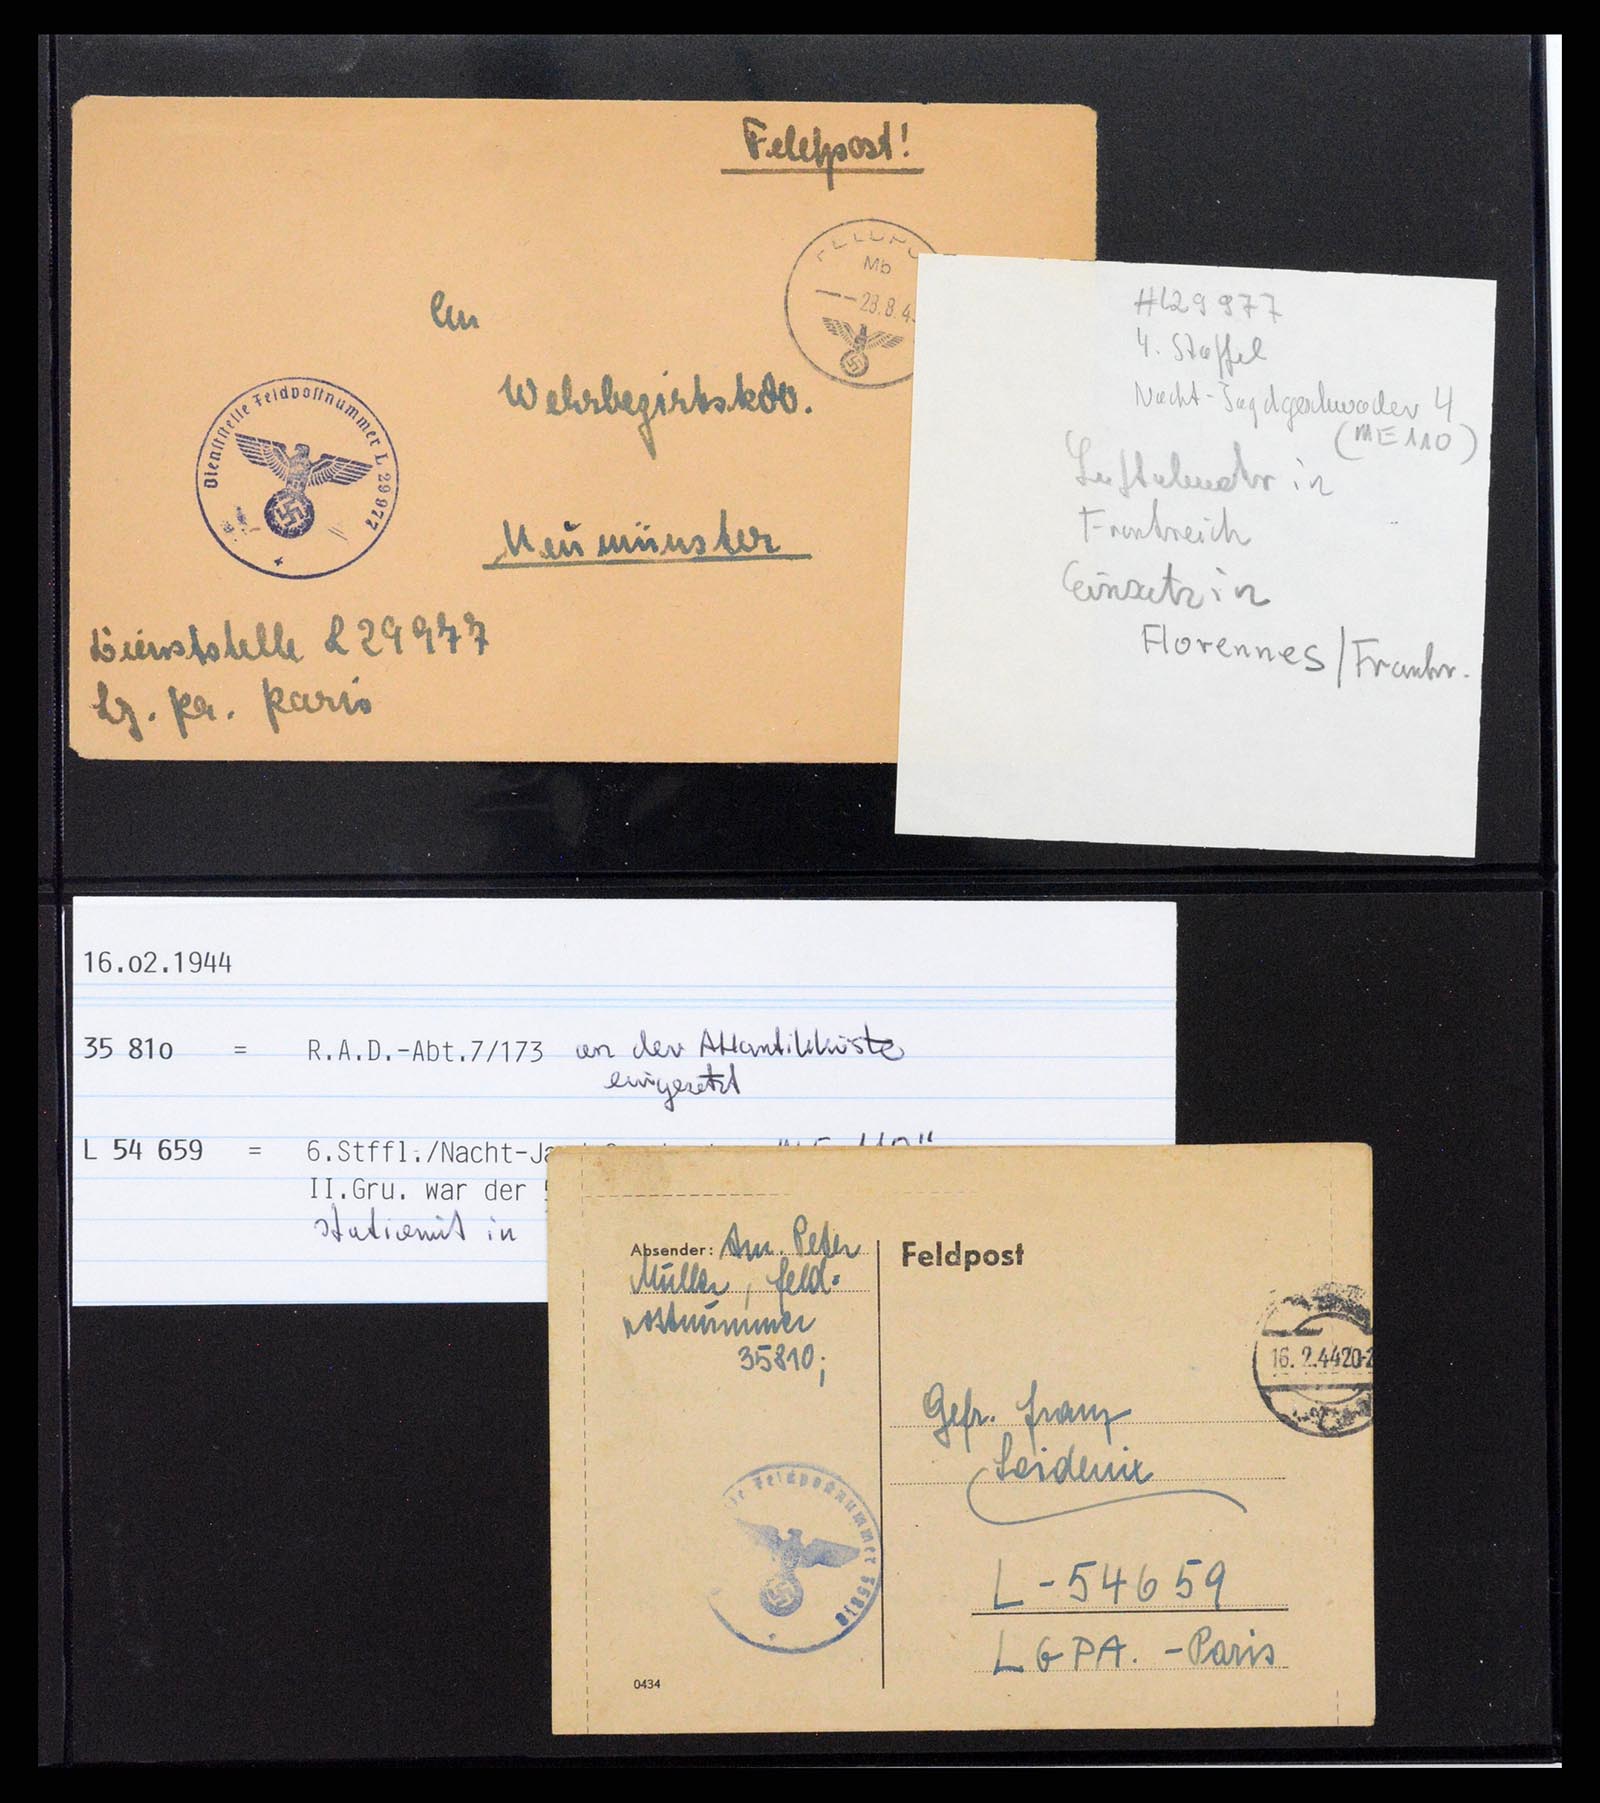 Feldpost!
FELDPO
Mb
--23.8.4
An
Wehrbezirkskdo.
Neumünster
Dienststelle Feldpostnummer L 29977
Dienststelle L 29977
Lg. pa. Paris
#L29977
4. Staffel
Nacht-Jagdgeschwader 4
(ME110)
Luftabwehr in
Frankreich
Einsatz in
Florennes/Frankr.
16.o2.1944
35 81o = R.A.D.-Abt.7/173 an der Atlantikküste
eingesetzt
L 54 659 = 6.Stffl./Nacht-Ja
II.Gru. war der
stationiert in
Absender: Am. Peter
Müller, Feld-
postnummer
35810;
Feldpost
16.2.44 20-2
Gefr. Franz
Seidenix
L-54659
LGPA. -Paris
Feldpostnummer 35810
0434